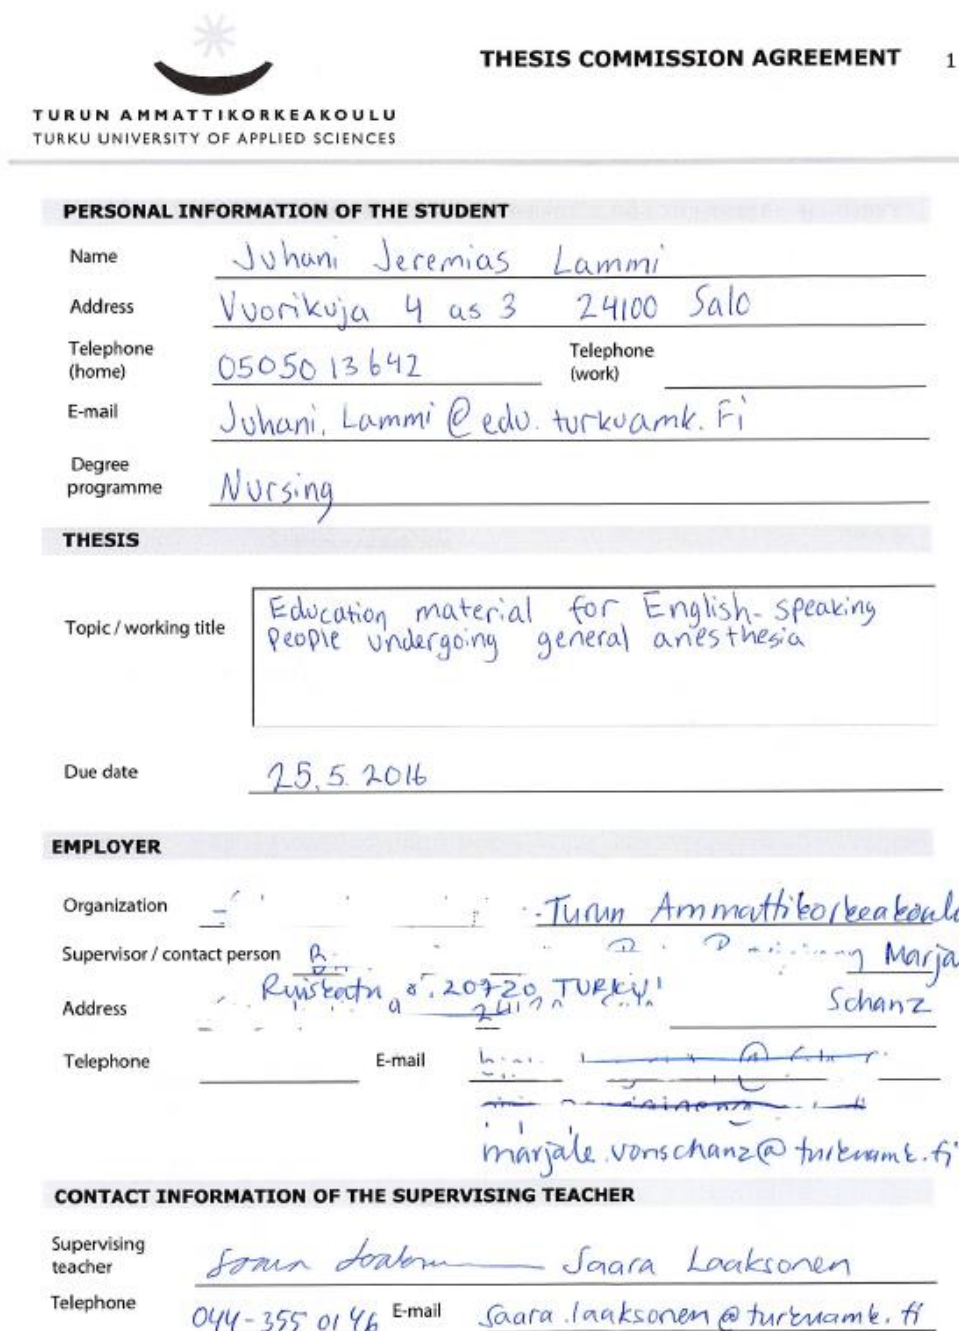 THESIS COMMISSION AGREEMENT 1
TURUN AMMATTIKORKEAKOULU
TURKU UNIVERSITY OF APPLIED SCIENCES
PERSONAL INFORMATION OF THE STUDENT
Name Juhani Jeremias Lammi
Address Vuorikuja 4 as 3 24100 Salo
Telephone (home) 0505013642 Telephone (work)
E-mail Juhani.Lammi@edu.turkuamk.Fi
Degree programme Nursing
THESIS
Topic / working title Education material for English-speaking
People undergoing general anesthesia
Due date 25.5.2016
EMPLOYER
Organization Turun Ammattikorkeakoulu
Supervisor / contact person Marja
Schanz
Address 20720 TURKU
Telephone E-mail
marjale.vonschanz@turkuamk.fi
CONTACT INFORMATION OF THE SUPERVISING TEACHER
Supervising teacher Saara Laaksonen
Telephone 044-355 0146 E-mail saara.laaksonen@turkuamk.fi